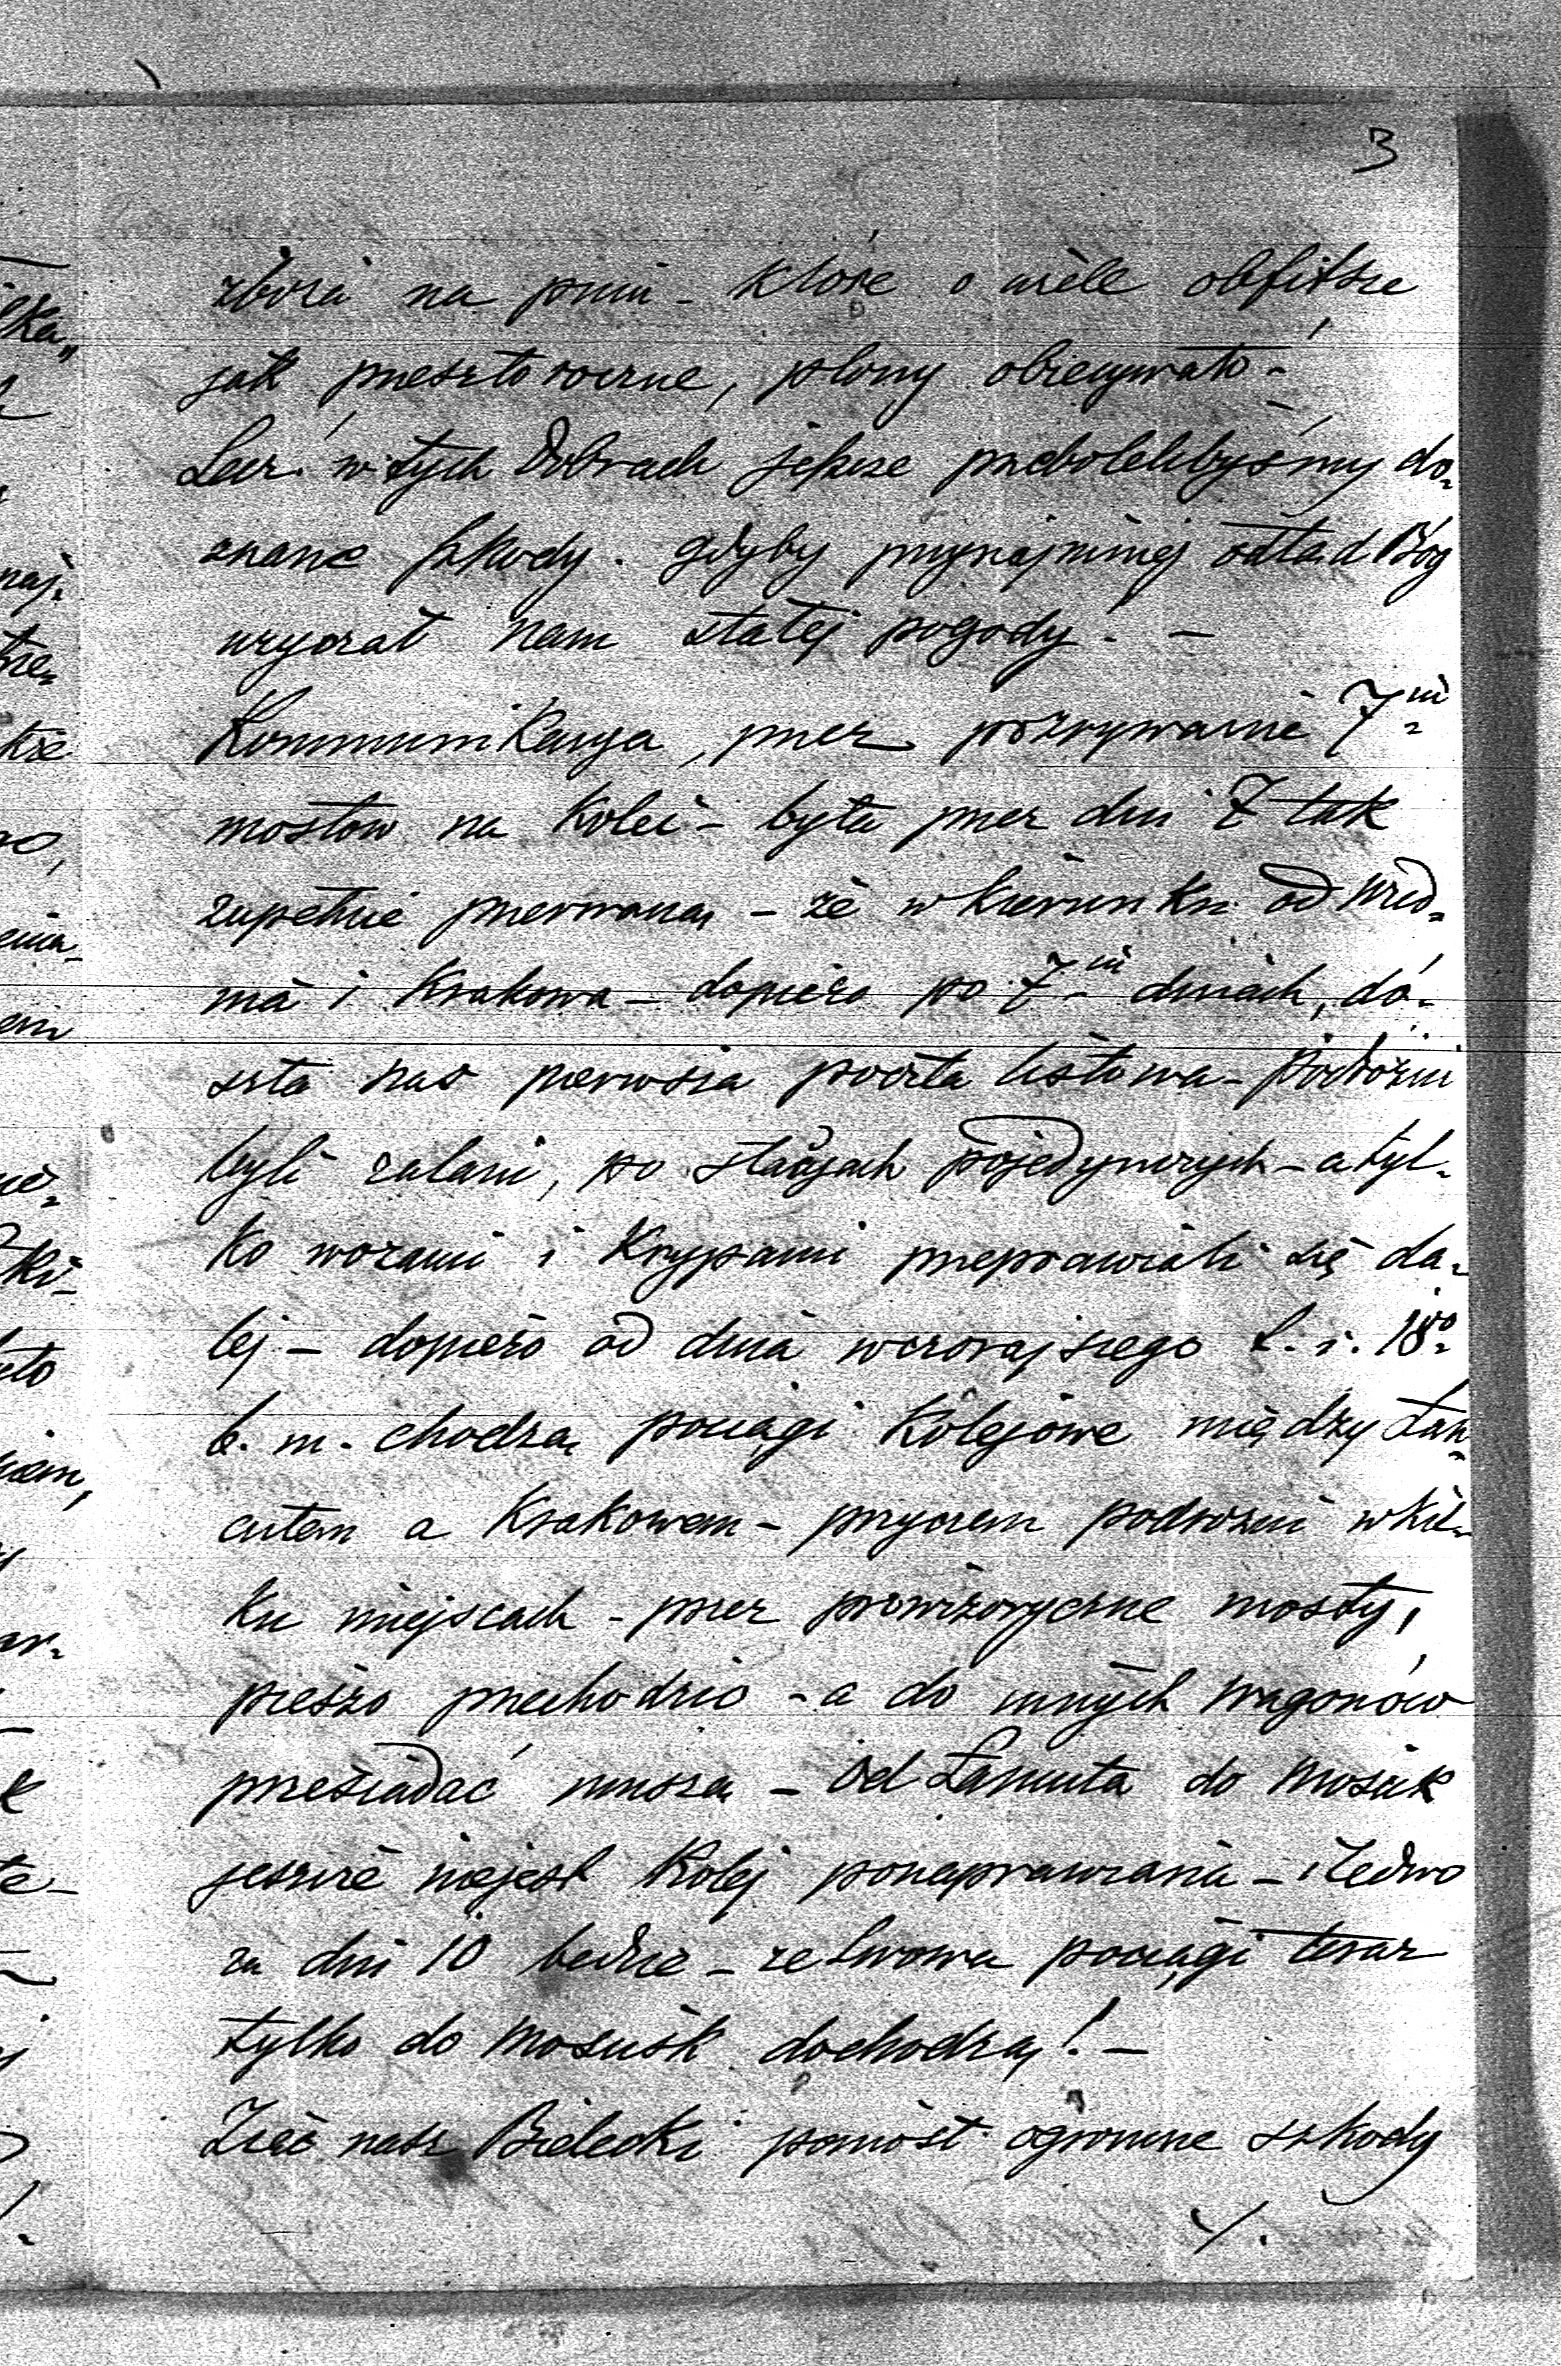 3
zboża na pniu - które o wiele obfitsze
jak przeszłoroczne, plony obiecywało -
Lecz w tych Dobrach jeszcze przebolelibyśmy do-
znane szkody. gdyby przynajmniej odtąd Bóg
użyczał nam stałej pogody! -
Kommunikacya, przez pozrywanie 7miu
mostów na kolei - była przez dni 7 tak
zupełnie przerwaną - że w kierunku od Wied-
nia i Krakowa - dopiero po 7miu dniach, do-
szła nas pierwsza poczta listowa - Podróżni
byli zalani, po stacyjach pojedynczych - a tyl-
ko wozami i krypami przeprawiali się da-
lej - dopiero od dnia wczorajszego t. i. 18go
b. m. chodzą pociągi kolejowe między Łań-
cutem a Krakowem - przyczem podróżni w kil-
ku miejscach - przez prowizoryczne mosty,
pieszo przechodzić - a do innych wagonów
przesiadać muszą - od Łańcuta do Mościsk
jeszcze niejest kolej ponaprawiana - i ledwo
za dni 10 będzie - ze Lwowa pociągi teraz
tylko do Mościsk dochodzą! -
Zięć nasz Bielecki poniósł ogromne szkody
./.